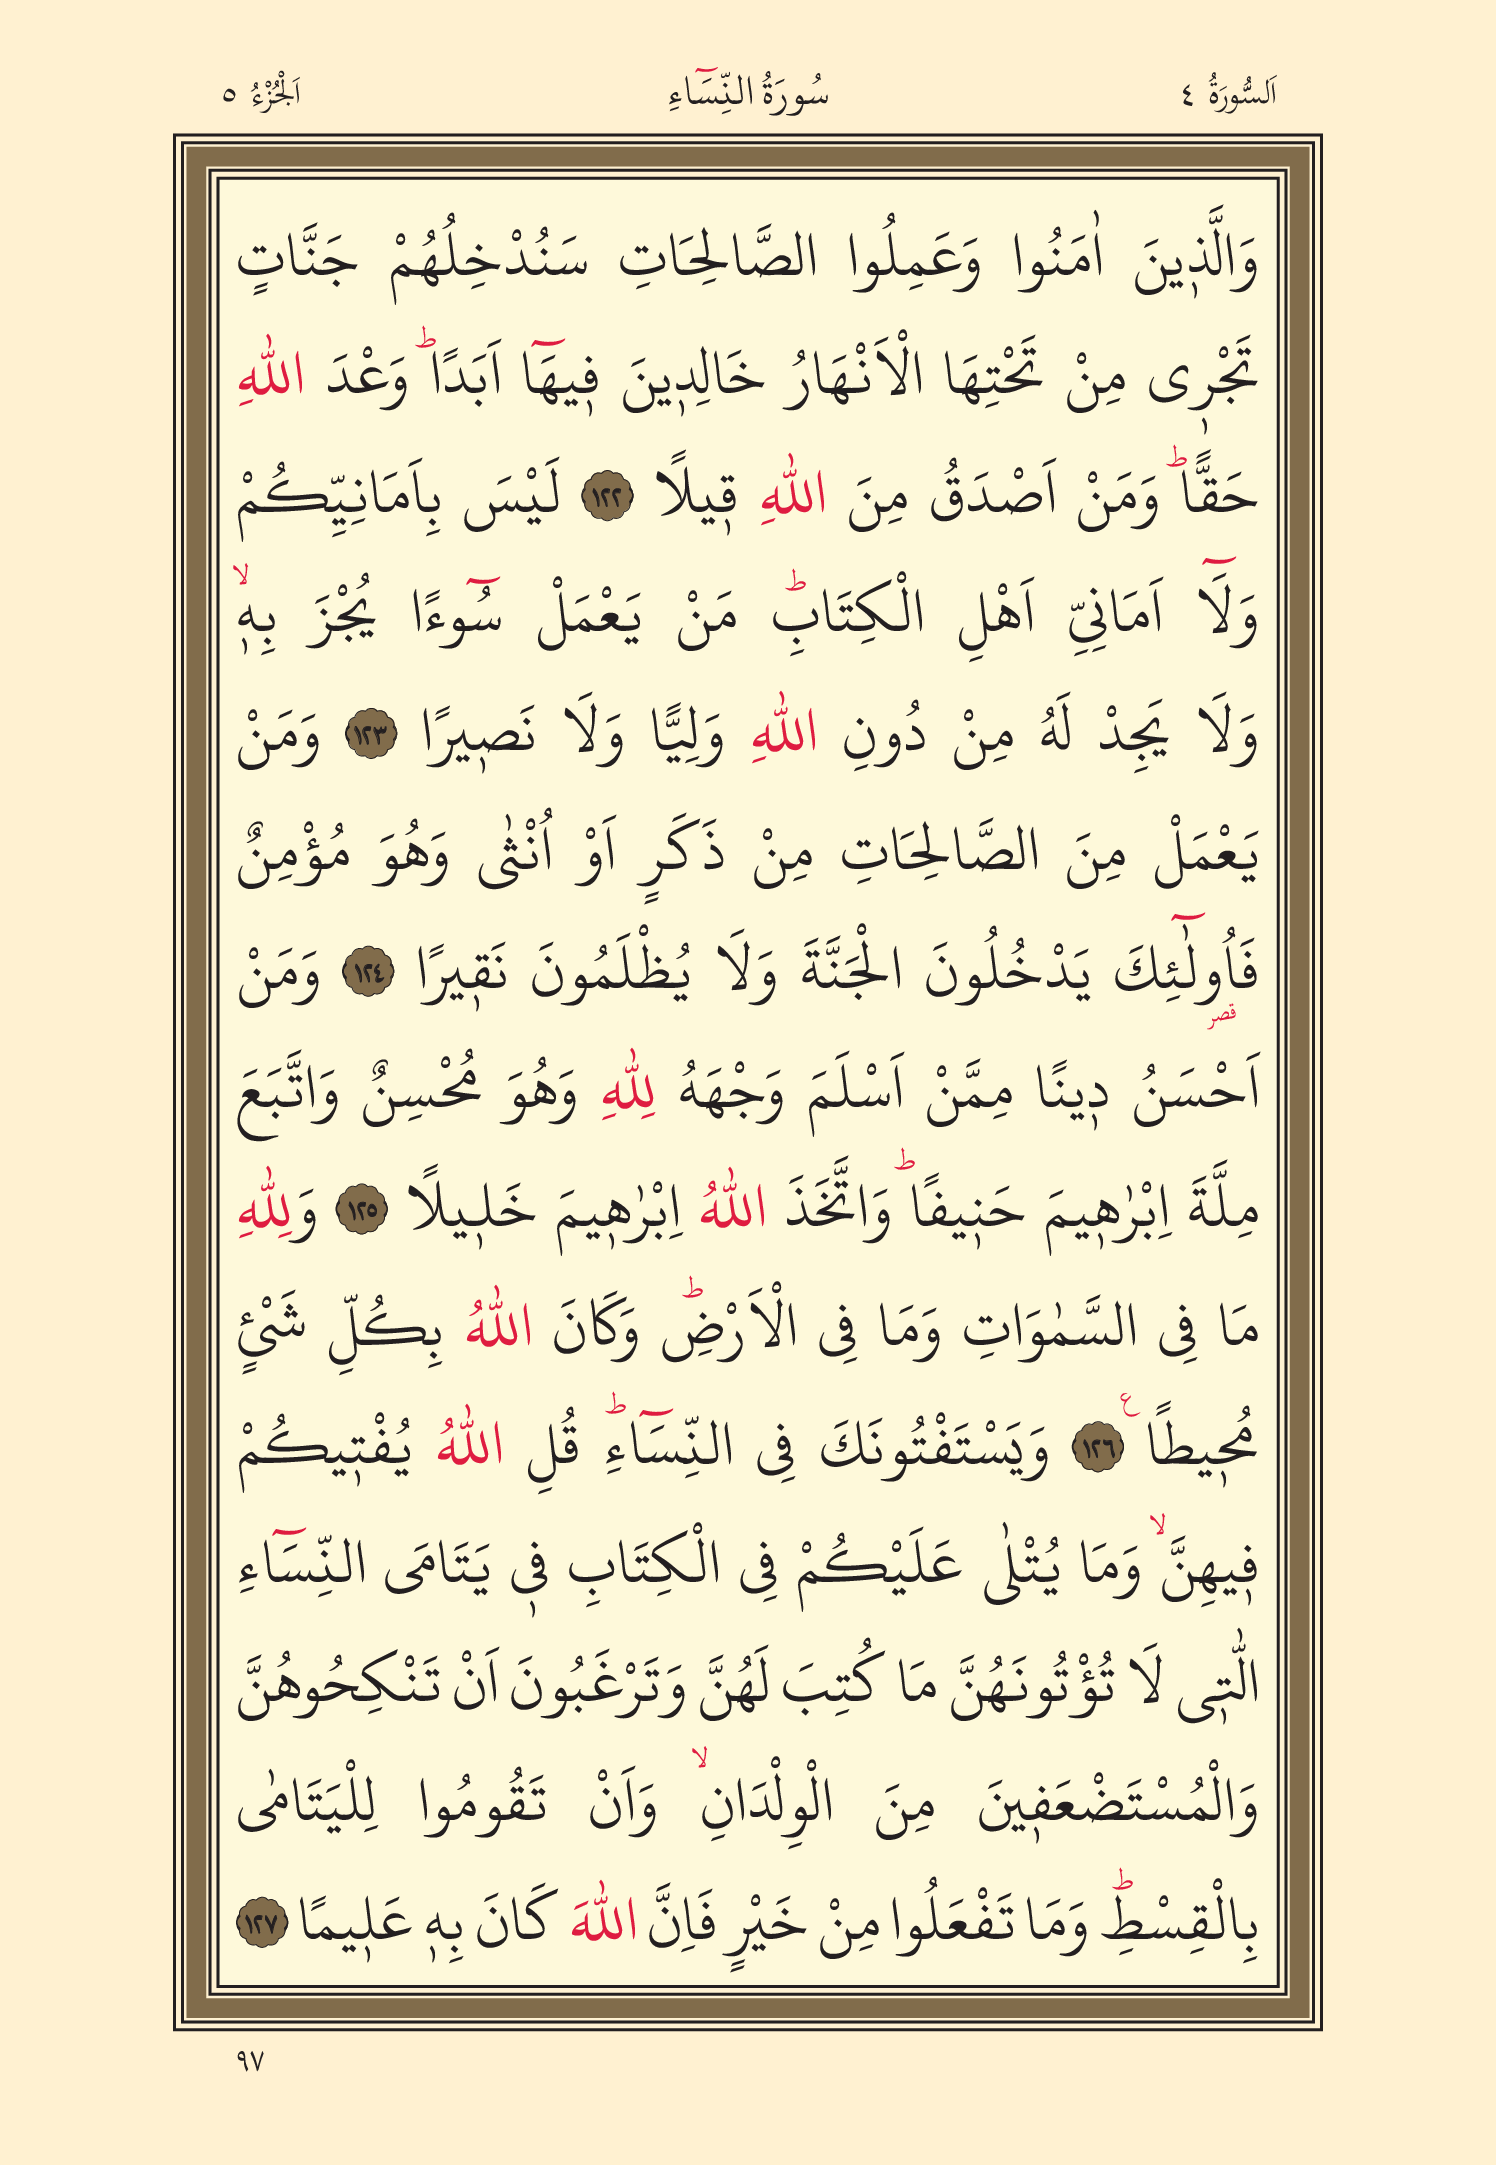 اَلسُّورَةُ ٤ سُورَةُ النِّسَٓاءِ اَلْجُزْءُ ٥
وَالَّذ۪ينَ اٰمَنُوا وَعَمِلُوا الصَّالِحَاتِ سَنُدْخِلُهُمْ جَنَّاتٍ
تَجْر۪ى مِنْ تَحْتِهَا الْاَنْهَارُ خَالِد۪ينَ ف۪يهَٓا اَبَدًاۜ وَعْدَ اللّٰهِ
حَقًّاۜ وَمَنْ اَصْدَقُ مِنَ اللّٰهِ ق۪يلًا ﴿١٢٢﴾ لَيْسَ بِاَمَانِيِّكُمْ
وَلَٓا اَمَانِىِّ اَهْلِ الْكِتَابِۜ مَنْ يَعْمَلْ سُٓوءًا يُجْزَ بِه۪ۙ
وَلَا يَجِدْ لَهُ مِنْ دُونِ اللّٰهِ وَلِيًّا وَلَا نَص۪يرًا ﴿١٢٣﴾ وَمَنْ
يَعْمَلْ مِنَ الصَّالِحَاتِ مِنْ ذَكَرٍ اَوْ اُنْثٰى وَهُوَ مُؤْمِنٌ
فَاُو۬لٰٓئِكَ يَدْخُلُونَ الْجَنَّةَ وَلَا يُظْلَمُونَ نَق۪يرًا ﴿١٢٤﴾ وَمَنْ
قصر
اَحْسَنُ د۪ينًا مِمَّنْ اَسْلَمَ وَجْهَهُ لِلّٰهِ وَهُوَ مُحْسِنٌ وَاتَّبَعَ
مِلَّةَ اِبْرٰه۪يمَ حَن۪يفًاۜ وَاتَّخَذَ اللّٰهُ اِبْرٰه۪يمَ خَل۪يلًا ﴿١٢٥﴾ وَلِلّٰهِ
مَا فِى السَّمٰوَاتِ وَمَا فِى الْاَرْضِۜ وَكَانَ اللّٰهُ بِكُلِّ شَىْئٍ
مُح۪يطًا ع ﴿١٢٦﴾ وَيَسْتَفْتُونَكَ فِى النِّسَٓاءِۜ قُلِ اللّٰهُ يُفْت۪يكُمْ
ف۪يهِنَّۙ وَمَا يُتْلٰى عَلَيْكُمْ فِى الْكِتَابِ ف۪ى يَتَامَى النِّسَٓاءِ
الّٰت۪ى لَا تُؤْتُونَهُنَّ مَا كُتِبَ لَهُنَّ وَتَرْغَبُونَ اَنْ تَنْكِحُوهُنَّ
وَالْمُسْتَضْعَف۪ينَ مِنَ الْوِلْدَانِۙ وَاَنْ تَقُومُوا لِلْيَتَامٰى
بِالْقِسْطِۜ وَمَا تَفْعَلُوا مِنْ خَيْرٍ فَاِنَّ اللّٰهَ كَانَ بِه۪ عَل۪يمًا ﴿١٢٧﴾
٩٧